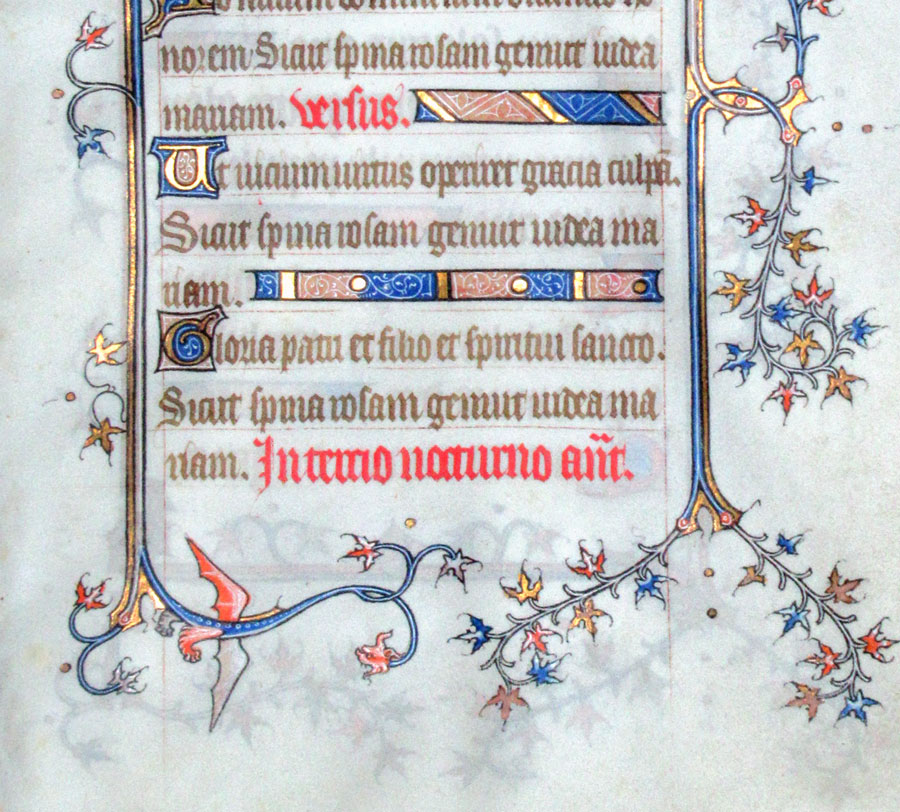 norem Sicut spina rosam genuit iudea
mariam. versus.
Ut uicium uirtus operiret gracia culpā.
Sicut spina rosam genuit iudea ma
riam.
Gloria patri et filio et spiritui sancto.
Sicut spina rosam genuit iudea ma
riam. In tercio nocturno añt.